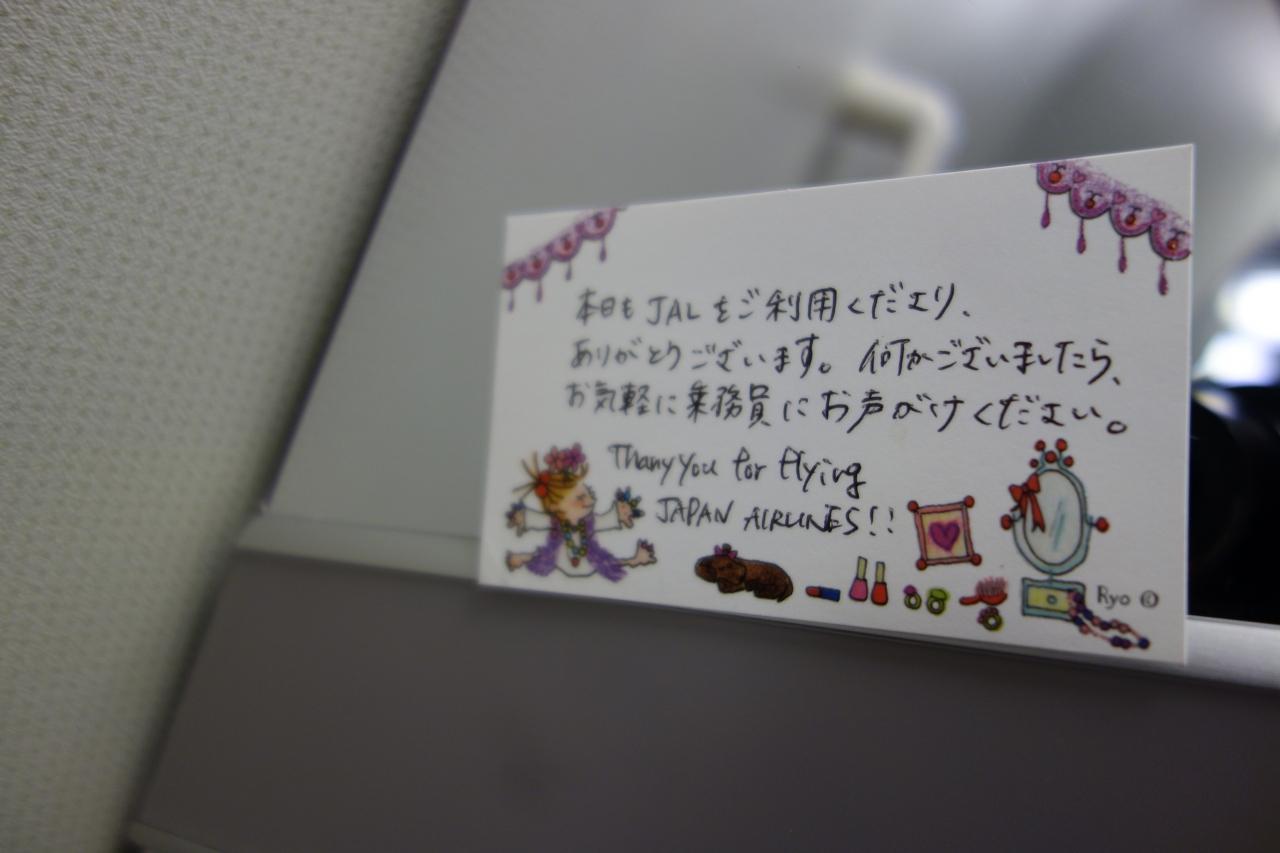 本日も JAL をご利用くださり、
ありがとうございます。 何かございましたら、
お気軽に乗務員にお声がけください。
Thank you for flying
JAPAN AIRLINES!!
Ryo